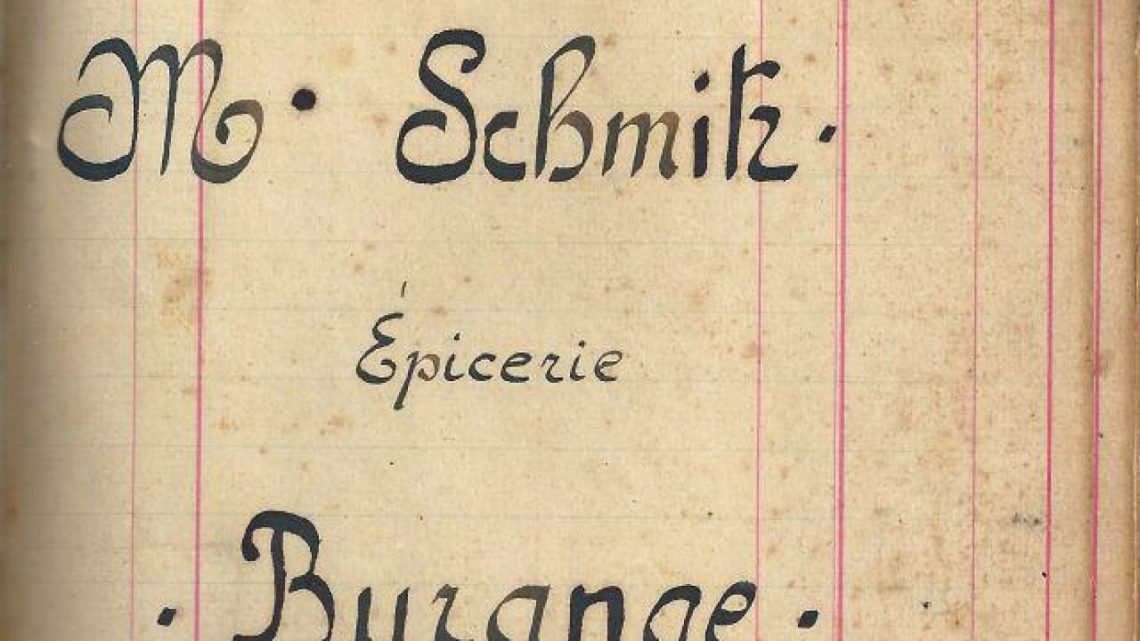 M. Schmitz.
Épicerie
. Burange .